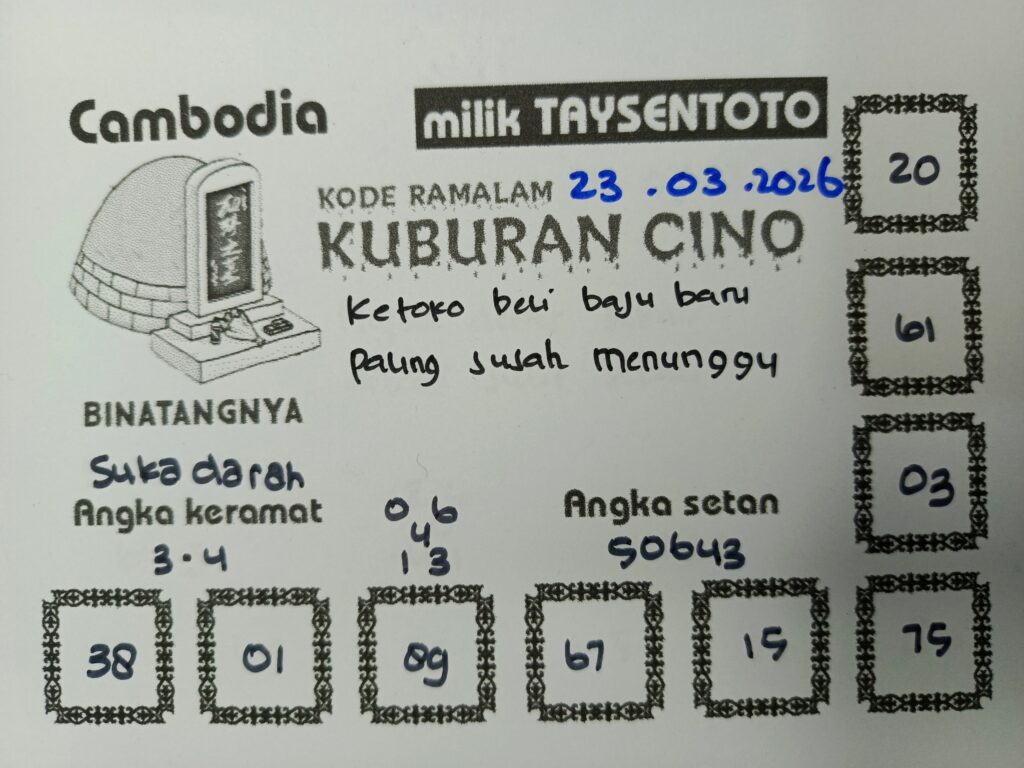 Cambodia
milik TAYSENTOTO
KODE RAMALAM 23.03.2026
KUBURAN CINO
Ketoko beli baju baru
paling susah menunggu
BINATANGNYA
Suka darah
Angka keramat
3.4
0 6
4
1 3
Angka setan
50643
20
61
03
75
38
01
89
67
15